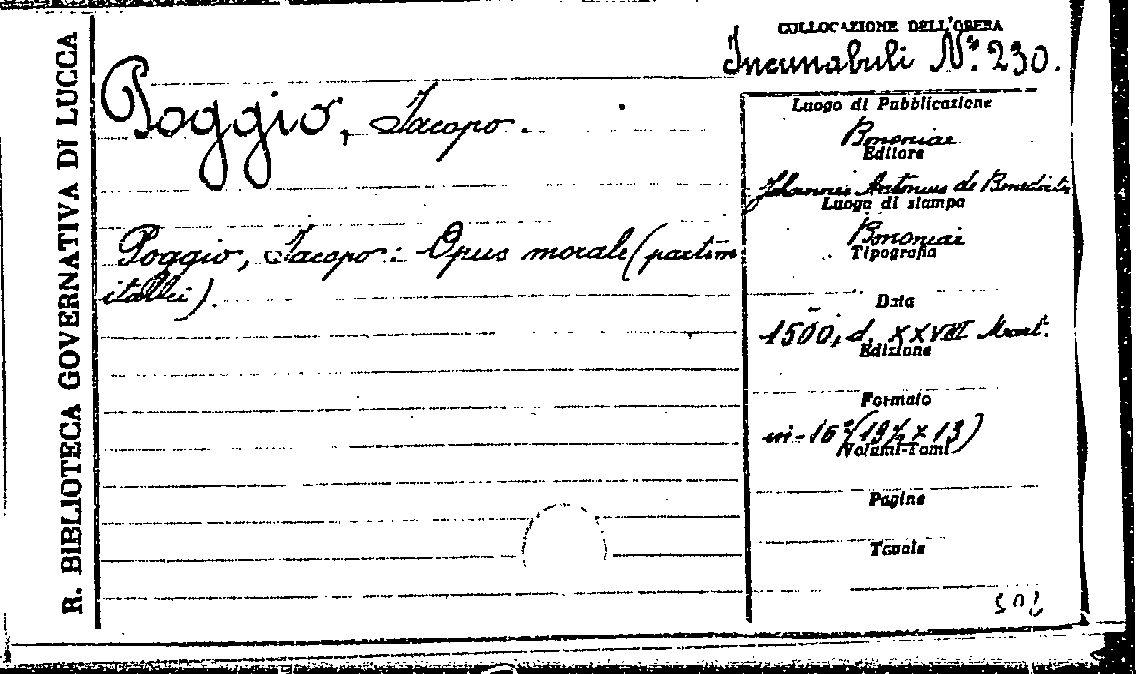 R. BIBLIOTECA GOVERNATIVA DI LUCCA
COLLOCAZIONE DELL'OPERA
Incunabuli N.° 230.
Poggio, Jacopo.
Poggio, Jacopo: Opus morale (partim
italici).
Luogo di Pubblicazione
Bononiae
Editore
Johannes Antonius de Benedictis
Luogo di stampa
Bononiae
Tipografia
Data
1500, d. XXVIII Mart.
Edizione
Formato
in-16° (19½ x 13)
Volumi-Tomi
Pagine
Tavole